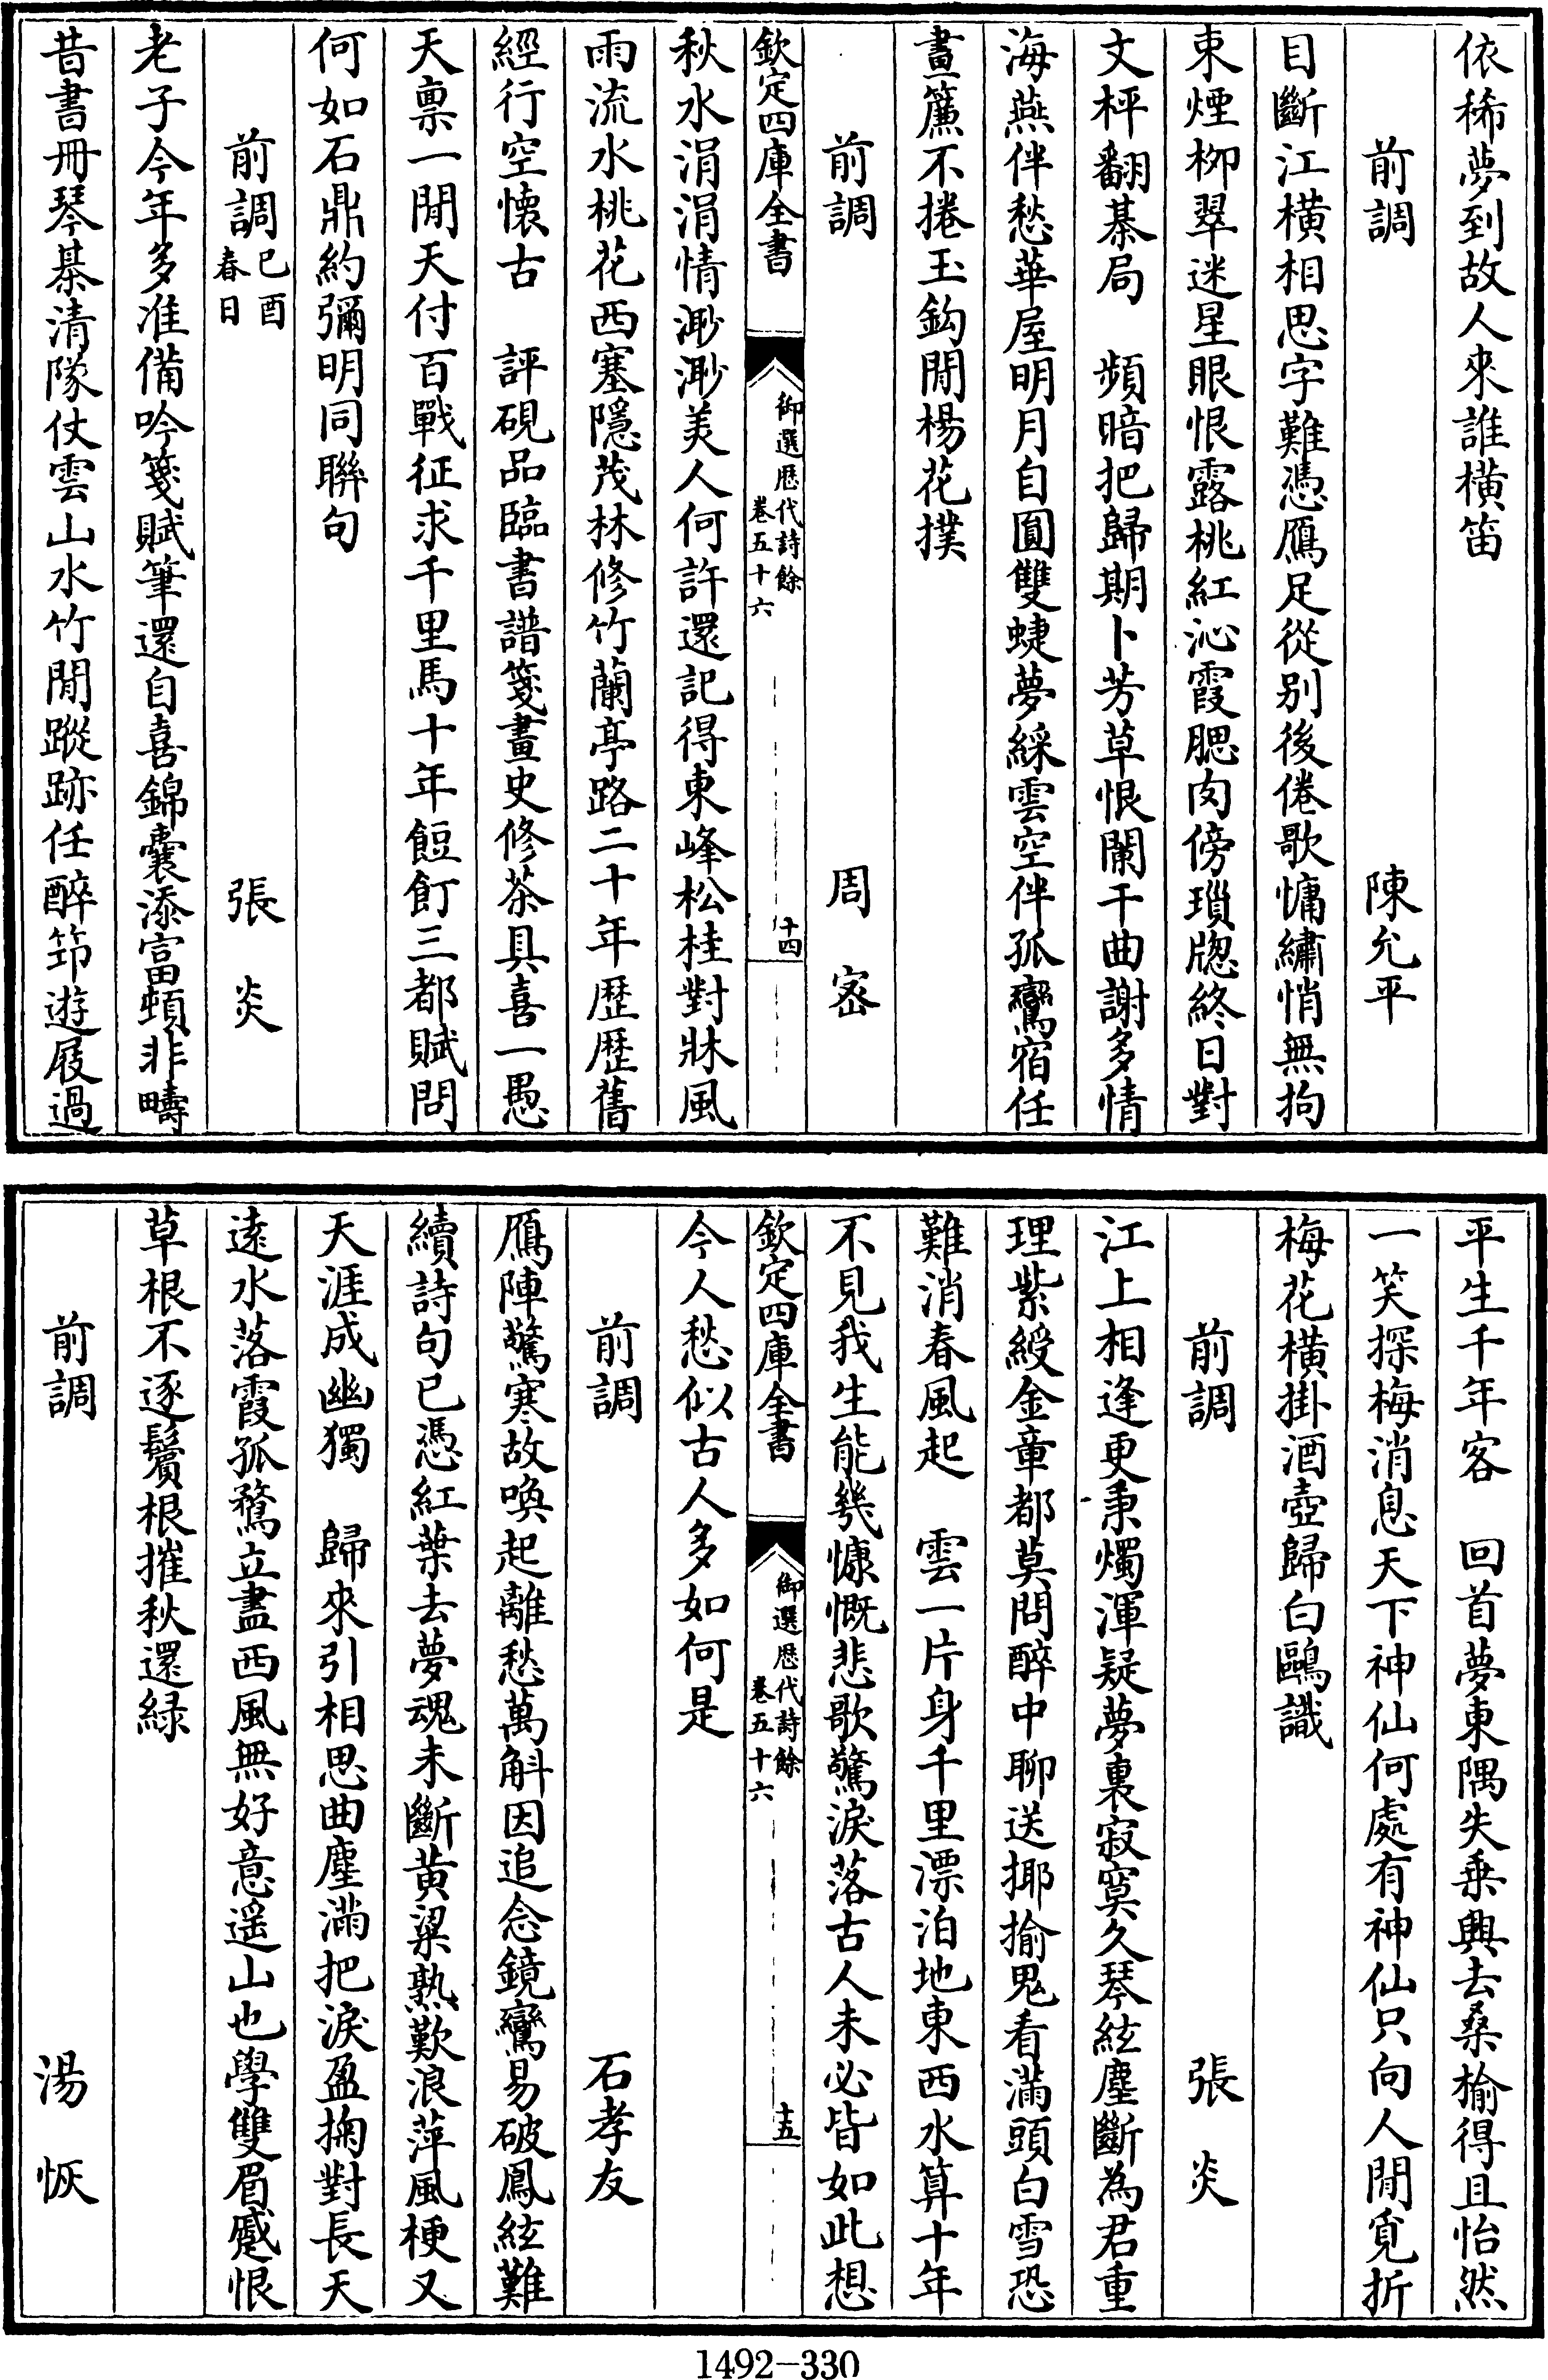 依稀夢到故人來誰橫笛
前調 陳允平
目斷江橫相思字難憑鴈足從別後倦歌慵繡悄無拘
束煙栁翠迷星眼恨露桃紅沁霞腮肉傍瑣牎終日對
文枰翻棊局 頻暗把歸期卜芳草恨闌干曲謝多情
海燕伴愁華屋明月自圓雙蜨夢綵雲空伴孤鸞宿任
畫簾不捲玉鈎閒楊花撲
前調 周密
欽定四庫全書 御選歴代詩餘 卷五十六 十四
秋水涓涓情渺渺美人何許還記得東峰松桂對牀風
雨流水桃花西塞隱茂林修竹蘭亭路二十年歴歴舊
經行空懐古 評硯品臨書譜箋畫史修茶具喜一愚
天禀一閒天付百戰征求千里馬十年餖飣三都賦問
何如石鼎約彌明同聯句
前調 己酉春日 張炎
老子今年多准備吟箋賦筆還自喜錦囊添富頓非疇
昔書冊琴棊清隊仗雲山水竹閒蹤跡任醉筇遊屐過
平生千年客 回首夢東隅失乗興去桑榆得且怡然
一笑探梅消息天下神仙何處有神仙只向人閒覓折
梅花橫掛酒壺歸白鷗識
前調 張炎
江上相逢更秉燭渾疑夢裏寂寞久琴絃塵斷為君重
理紫綬金章都莫問醉中聊送揶揄鬼看滿頭白雪恐
難消春風起 雲一片身千里漂泊地東西水算十年
不見我生能幾慷慨悲歌驚淚落古人未必皆如此想
欽定四庫全書 御選歴代詩餘 卷五十六 十五
今人愁似古人多如何是
前調 石孝友
鴈陣驚寒故喚起離愁萬斛因追念鏡鸞易破鳳絃難
續詩句已憑紅葉去夢魂未斷黄粱熟歎浪萍風梗又
天涯成幽獨 歸來引相思曲塵滿把淚盈掬對長天
遠水落霞孤鶩立盡西風無好意遥山也學雙眉蹙恨
草根不逐鬢根摧秋還緑
前調 湯恢
1492–330